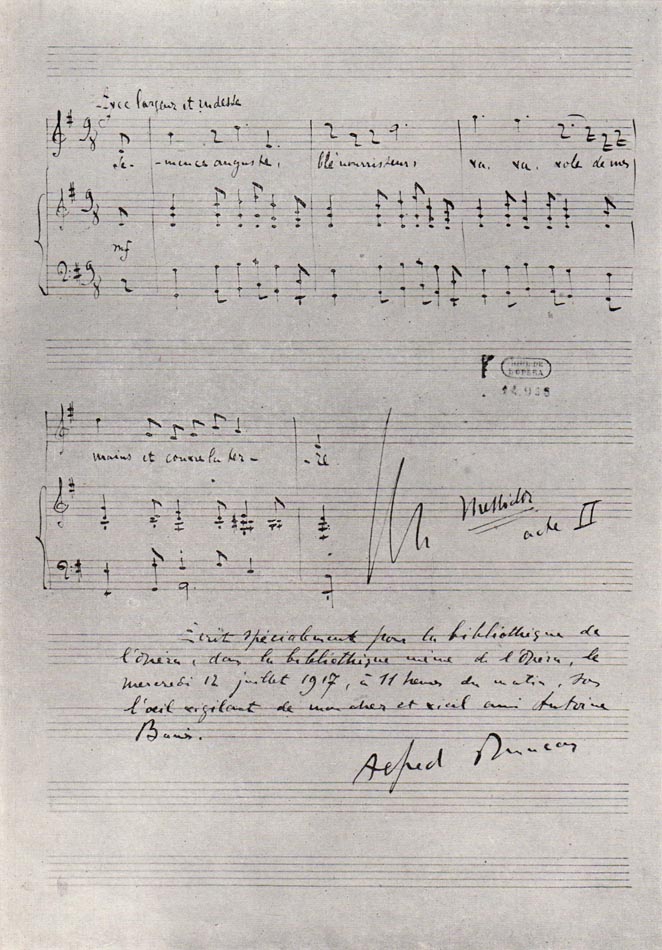 Avec largeur et rudesse
Se- -mence auguste, blé nourrisseur, va, va, vole de mes
mf
BIBL. DE
L'OPÉRA
mains et couvre la ter- -re
Messidor
acte II
Écrit spécialement pour la bibliothèque de
l'Opéra, dans la bibliothèque même de l'Opéra, le
mercredi 12 juillet 1917, à 11 heures du matin, sous
l'œil vigilant de mon cher et vieil ami Antoine
Banès.
Alfred Bruneau